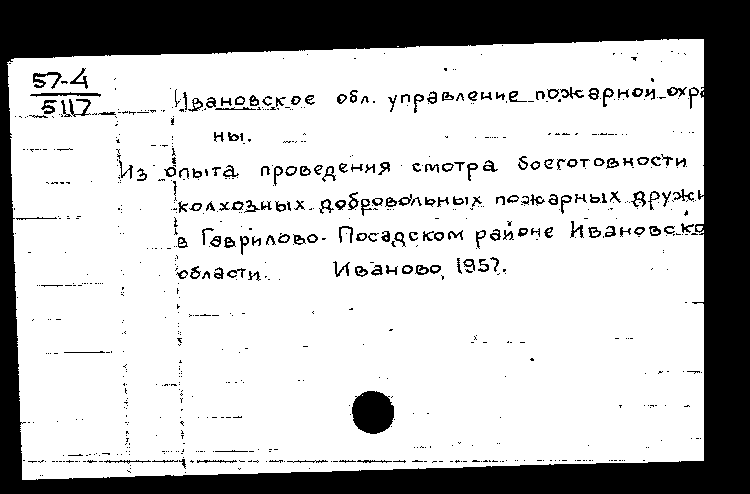 57-4
5117
Ивановское обл. управление пожарной охра
ны.
Из опыта проведения смотра боеготовности
колхозных добровольных пожарных дружи
в Гаврилово-Посадском районе Ивановско
области. Иваново, 1957.